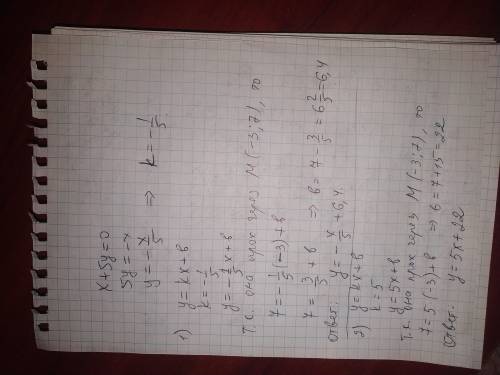 x+5y=0
5y=-x
y=-x/5 ⇒ k=-1/5
1) y=kx+b
k=-1/5
y=-1/5x+b
Т.к. она прох через M(-3;7), то
7=-1/5(-3)+b
7=3/5+b ⇒ b=7-3/5=6 2/5=6,4
Ответ: y=-x/5+6,4.
2) y=kx+b
k=5
y=5x+b
Т.к. она прох через M(-3;7), то
7=5·(-3)+b ⇒ b=7+15=22
Ответ: y=5x+22